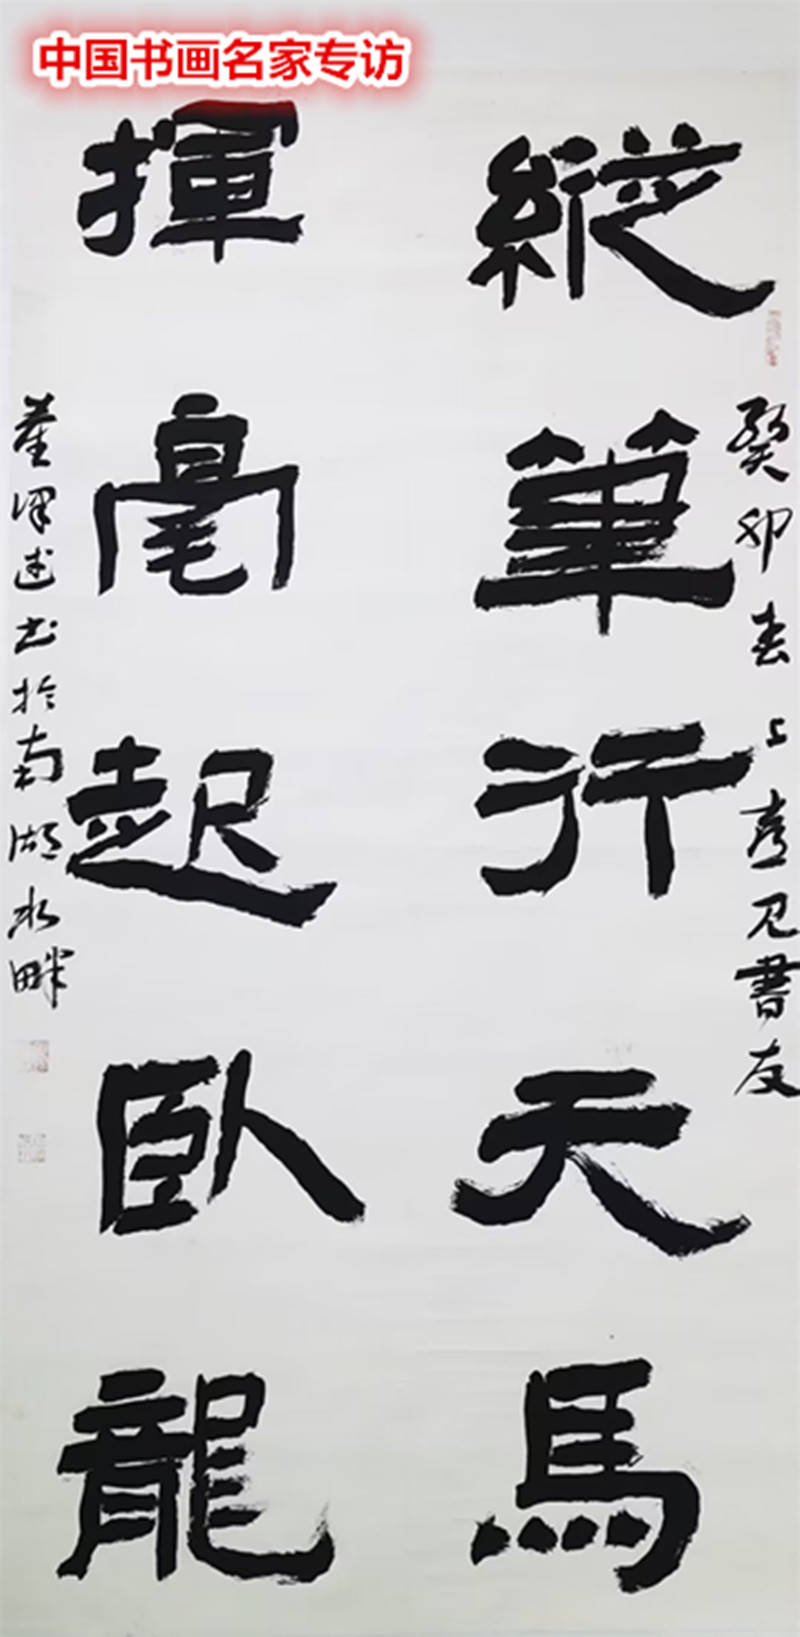 中国书画名家专访
癸卯春上書友
縱筆行天馬
揮毫起臥龍
书於南湖水畔